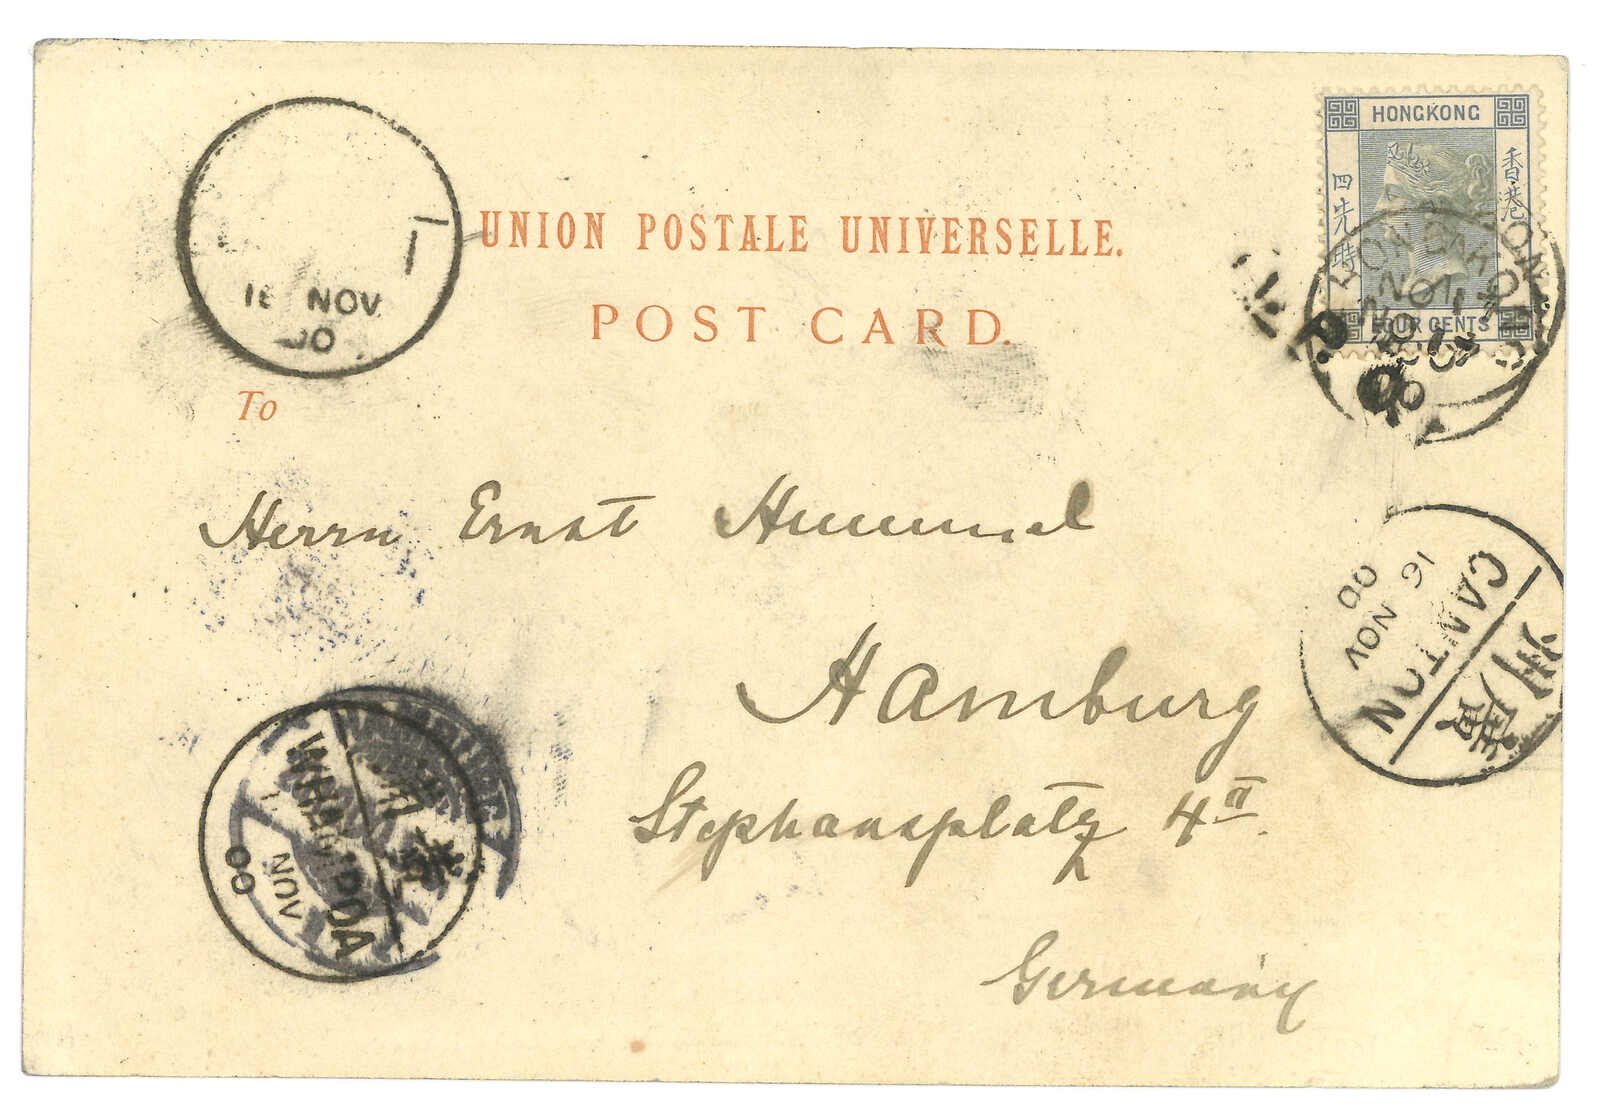 HONGKONG
香港
四先時
FOUR CENTS
UNION POSTALE UNIVERSELLE.
POST CARD.
To
1
NOV
Herrn Ernst Hummel
Hamburg
Stephansplatz 4 II.
Germany
CANTON
16 NOV
00
廣州
WHAMPOA
NOV
00